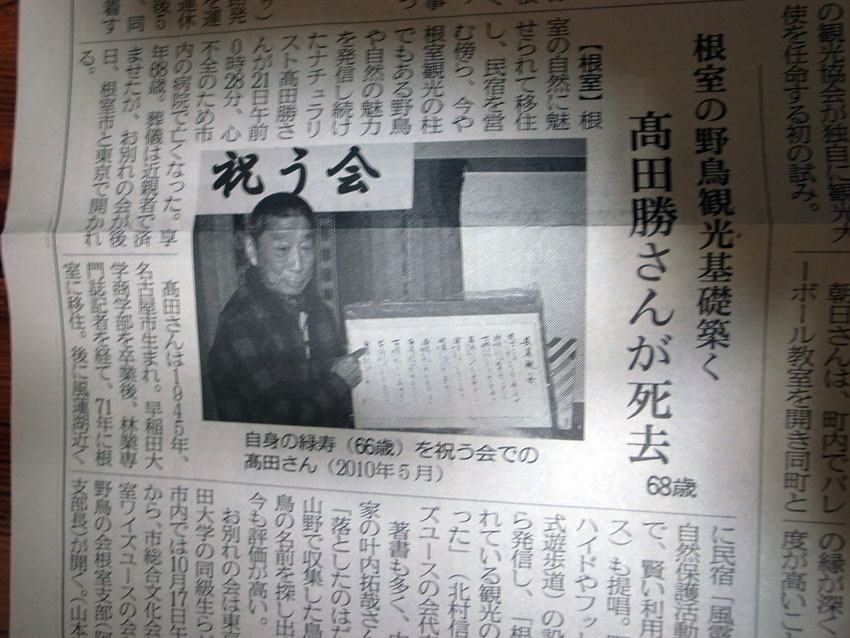 の観光協会が独自に観光大
使を任命する初の試み。
朝日さんは、町内でバレ
ーボール教室を開き同町と
の縁が深く
度が高いこ
根室の野鳥観光基礎築く
髙田勝さんが死去
68歳
【根室】根
室の自然に魅
せられて移住
し、民宿を営
む傍ら、今や
根室観光の柱
でもある野鳥
や自然の魅力
を発信し続け
たナチュラリ
スト髙田勝さ
んが21日午前
0時28分、心
不全のため市
内の病院で亡くなった。享
年68歳。葬儀は近親者で済
ませたが、お別れの会が後
日、根室市と東京で開かれ
る。
祝う会
自身の緑寿（66歳）を祝う会での
髙田さん（2010年5月）
髙田さんは1945年、
名古屋市生まれ。早稲田大
学商学部を卒業後、林業専
門誌記者を経て、71年に根
室に移住。後に風蓮湖近く
に民宿「風
自然保護活動
で、賢い利用
ス）も提唱。
ハイドやフッ
式遊歩道）の設
ら発信し、「根
れている観光の
った」（北村信
ズユースの会代
著書も多く、
家の叶内拓哉さん
「落としたのはだ
山野で収集した鳥
鳥の名前を探し出
今も評価が高い。
お別れの会は東京
田大学の同級生ら
市内では10月17日午
から、市総合文化会
室ワイズユースの会
野鳥の会根室支部
支部長）が開く。山本